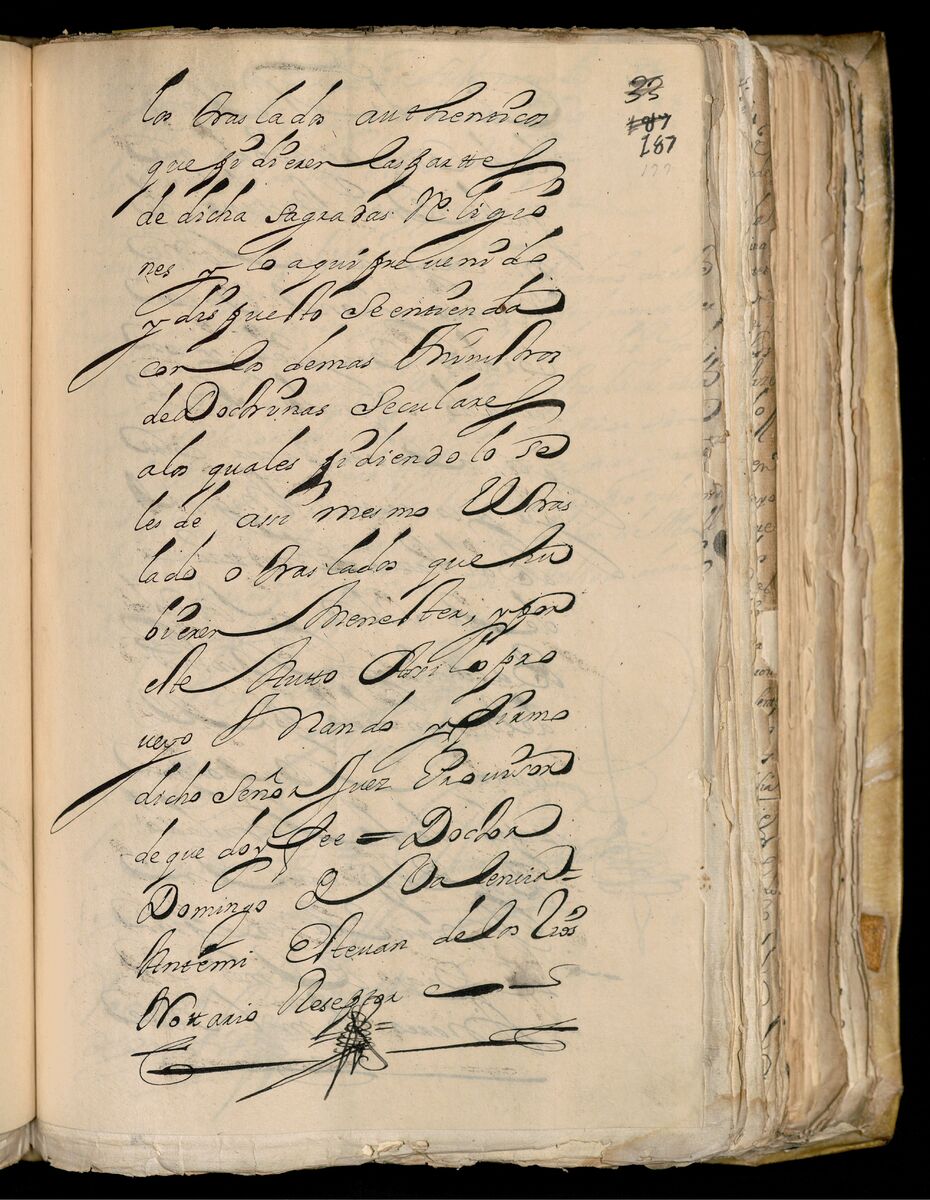 33
187
187
177
los traslados authenticos
que pidieren las partes
de dicha sagradas Religio
nes y lo aqui prevenido
y dispuesto se entienda
con los demas Ministros
de Doctrinas seculares
a los quales pidiendolo se
les de assi mesmo el tras
lado o traslados que hu
bieren Menester, y por
este Autto assi lo pro
ueyo Mando y firmo
dicho señor Juez Provisor
de que doy fee = Doctor
Domingo de Valencia =
Antemi Esteuan de los Rios
Nottario Reseptor